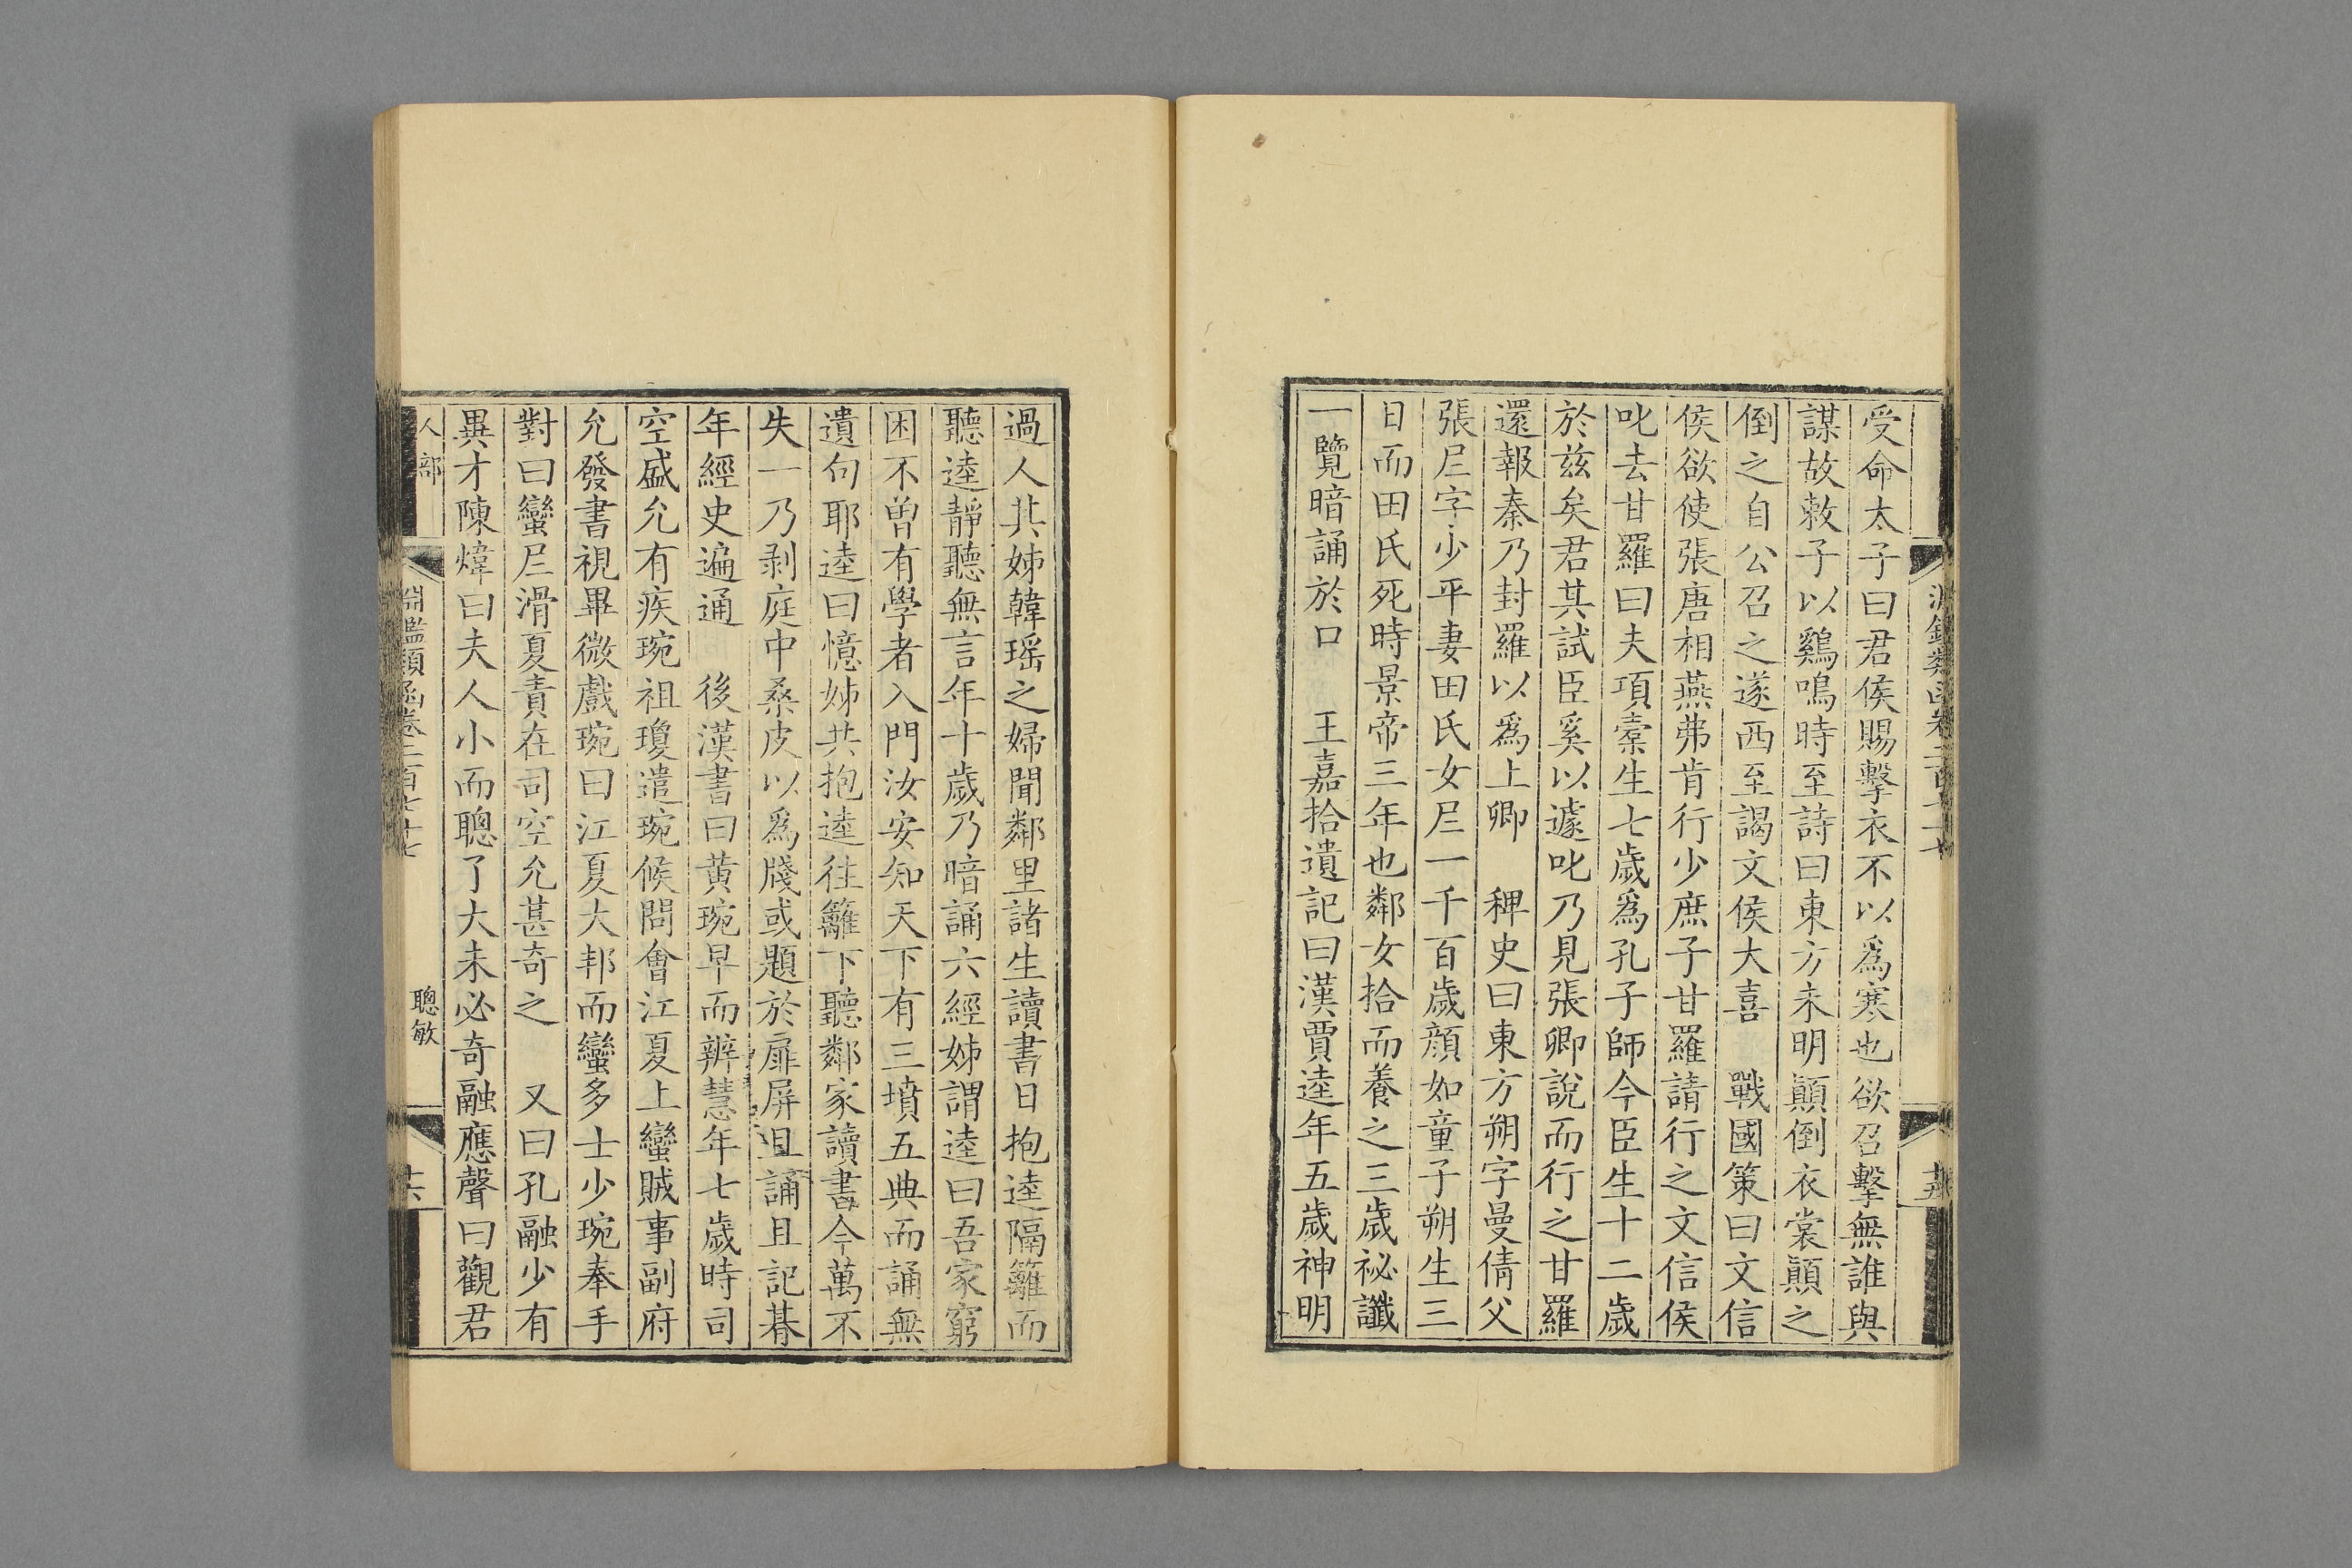 受命太子曰君侯賜擊衣不以爲寒也欲召擊無誰與
謀故敕子以鷄鳴時至詩曰東方未明顚倒衣裳顚之
倒之自公召之遂西至謁文侯大喜　戰國策曰文信
侯欲使張唐相燕弗肯行少庶子甘羅請行之文信侯
叱去甘羅曰夫項橐生七歲爲孔子師今臣生十二歲
於兹矣君其試臣奚以遽叱乃見張卿說而行之甘羅
還報秦乃封羅以爲上卿　稗史曰東方朔字曼倩父
張𡰥字少平妻田氏女𡰥一千百歲顔如童子朔生三
日而田氏死時景帝三年也鄰女拾而養之三歲祕讖
一覽暗誦於口　王嘉拾遺記曰漢賈逵年五歲神明
過人其姊韓瑶之婦聞鄰里諸生讀書日抱逵隔籬而
聽逵靜聽無言年十歲乃暗誦六經姊謂逵曰吾家窮
困不曾有學者入門汝安知天下有三墳五典而誦無
遺句耶逵曰憶姊共抱逵往籬下聽鄰家讀書今萬不
失一乃剥庭中桑皮以爲牋或題於扉屏且誦且記朞
年經史遍通　後漢書曰黄琬早而辨慧年七歲時司
空盛允有疾琬祖瓊遣琬候問會江夏上蠻賊事副府
允發書視畢微戲琬曰江夏大邦而蠻多士少琬奉手
對曰蠻𡰥滑夏責在司空允甚奇之　又曰孔融少有
異才陳煒曰夫人小而聰了大未必奇融應聲曰觀君
人部
淵鑑類函卷二百七十七
聰敏
十六